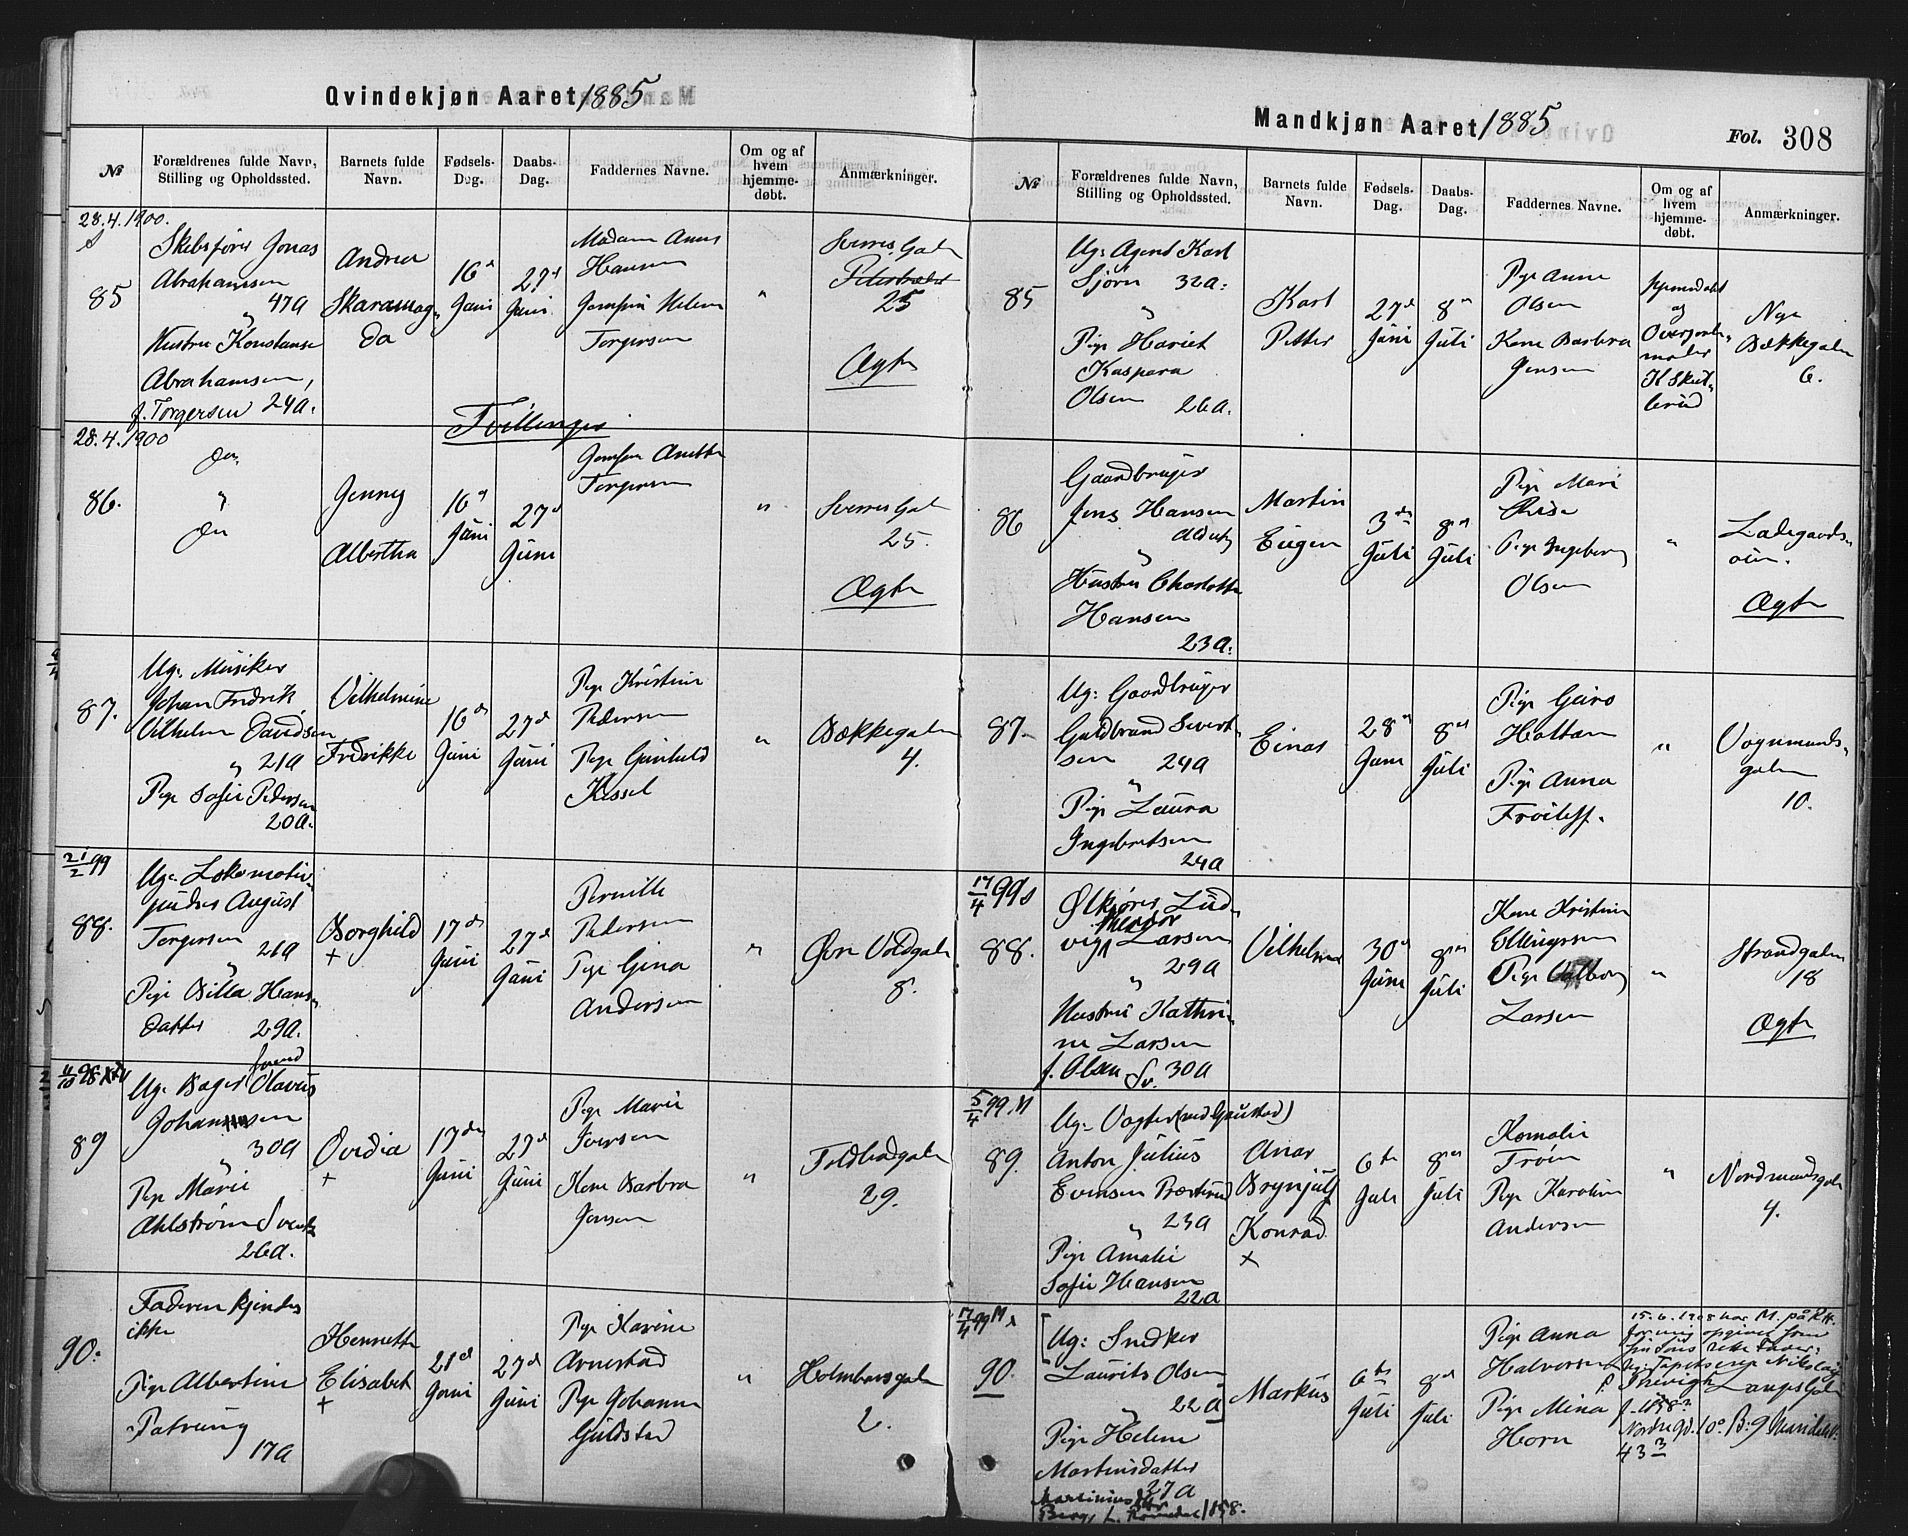 Qvindekjøn Aaret 1885
№
Forældrenes fulde Navn,
Stilling og Opholdssted.
Barnets fulde
Navn.
Fødsels-
Dag.
Daabs-
Dag.
Faddernes Navne.
Om og af
hvem
hjemme-
døbt.
Anmærkninger.
28.4.1900.
85
Jonas
Abrahamsen
47a
"
Hustru Konstanse
Abrahamsen,
f. Torgersen 24a.
Andrea
Skaramag-
da
16d
Juni
27d
Juni
Madam
Hansen
Jomfru Helene
Torgersen
"
Sverres Gade
25
Ægte
Tvillinger
28.4.1900
86.
"
Jenny
Albertha
16d
Juni
27d
Juni
Jomfru Anette
Torgersen
"
Sverres Gade
25.
Ægte
87.
Ug: Musiker
Johan Fredrik
Vilhelm Davidsen
" 21a
Pige Sofie Pedersen
20a.
Vilhelmine
Fredrikke
16de
Juni
27d
Juni
Pige Kristine
Pedersen
Pige Gunhild
Kessel
"
Bækkegaden
4.
21/2 99
88.
Ug: Lokomotiv-
pudser August
Torgersen 21a
"
Pige Billa Hans-
datter 29a.
Borghild
+
17de
Juni
27d
Juni
Pernille
Pedersen
Pige Gina
Andersen
"
Øvre Voldgade
8.
89
Ug: Bager Olavus
Johannsen
30a
"
Pige Marie
Ahlstrøm Svensk
26a.
Ovidia
+
17de
Juni
27d
Juni
Pige Marie
Iversen
Kone Barbra
Jensen
"
Toldbodgaden
29.
90.
Faderen kjendes
ikke
Pige Albertine
17a
Hennette
Elisabet
+
21d
Juni
27d
Juni
Pige Karine
Arnestad
Pige Johanne
Guldstad
"
Holmboesgade
2.
Mandkjøn Aaret 1885
Fol. 308
№
Forældrenes fulde Navn,
Stilling og Opholdssted.
Barnets fulde
Navn.
Fødsels-
Dag.
Daabs-
Dag.
Faddernes Navne.
Om og af
hvem
hjemme-
døbt.
Anmærkninger.
85
Ug: Agent Karl
Sjørn 32a.
"
Pige Hariet
Kaspara
Olsen 26a.
Karl
Petter
27d
Juni
8de
Juli
Pige Anne
Olsen
Kone Barbra
Jensen
Hjemmedøbt
af
Overjorde-
moder
K Skut-
terud
Nye
Bækkegaden
6.
86
Gaardbruger
Jens Hansen
"
Hustru Charlotte
Hansen
23a.
Martin
Eugen
3de
Juli
8de
Juli
Pige Mari
Pige Ingeborg
Olsen
"
Ladegaards-
øen.
Ægte
87.
Ug: Gaardbruger
Guldbrand Sivert-
sen 24a
"
Pige Laura
Ingebretsen
24a
Einar
28de
Juni
8de
Juli
Pige Guro
Holtan
Pige Anna
"
Vognmands-
gaden
10.
17/4 99 s
88.
Ølkjører Lud-
vig Theodor Larsen
29a
"
Hustru Kathri-
ne Larsen
f. Olsen Sv. 30a
Vilhelm
30d
Juni
8de
Juli
Kone Kristine
Ellingsen
Pige Valborg
Larsen
"
Strandgaden
18
Ægte
5/4 99. M
89.
Ug: Vogter (ved Gaustad)
Anton Julius
Evensen
" 23a
Pige Amalie
Sofie Hansen
22a
Brynjulf
Konrad
+
6te
Juli
8de
Juli
Kornelie
Pige Karoline
Andersen
"
Nordmandsgade
4.
17/4 99 M
90.
Ug: Snedker
Laurits Olsen
22a
"
Pige Helene
Martinsdatter
27a
Martinius
1858.
Markus
6te
Juli
8d
Juli
Pige Anna
Halvorsen
Pige Mina
Horn
15.6.1908 har M. på R.K.
opgivet som
rette Fader:
Nikolay
f. 1858?
43